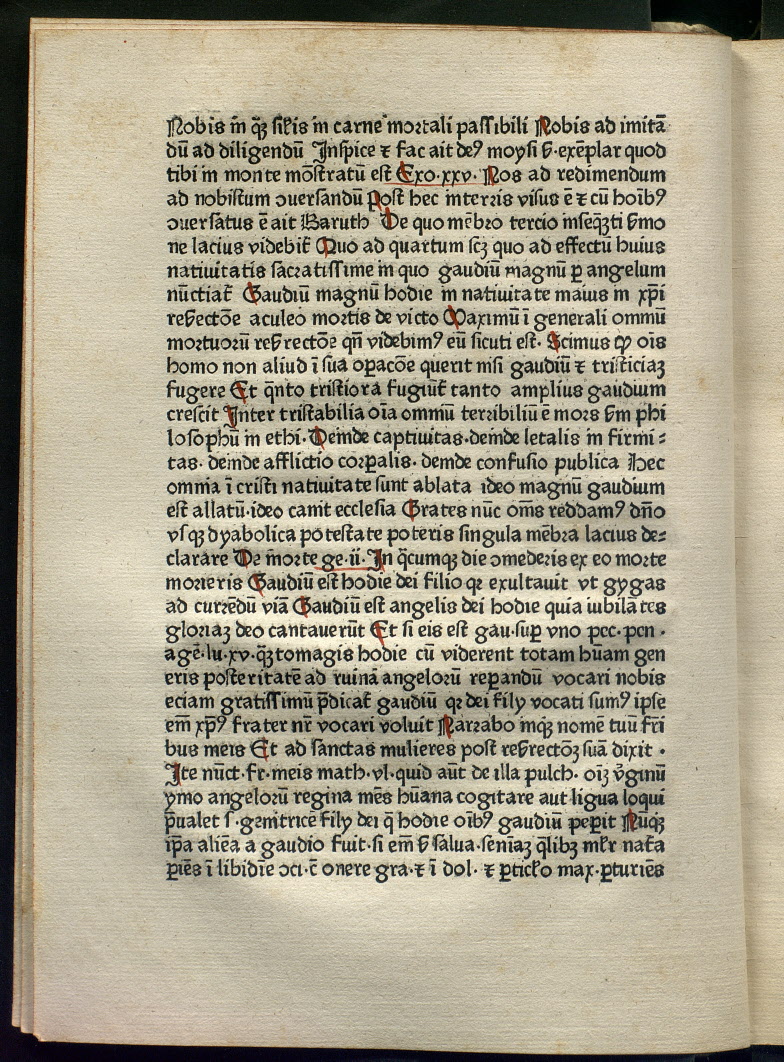 Nobis in qꝫ sil̄is in carne mortali passibili Nobis ad imitā
dū ad diligendū Inspice ⁊ fac ait deꝰ moysi ẜ·exēplar quod
tibi in monte mōstratū est Exo·xxv· Nos ad redimendum
ad nobiscum ↄuersandū Post hec in terris visus ē ⁊ cū hoībꝰ
ↄuersatus ē ait Baruth De quo mēbro tercio inseqꝫti ẜmo
ne lacius videbit̄ Quo ad quartum scꝫ quo ad effectū huius
natiuitatis sacratissime in quo gaudiū magnū ꝑ angelum
nūctiat̄ Gaudiū magnū hodie in natiuitate maius in xp̄i
reẜectōe aculeo mortis de victo Maximū ī generali omniū
mortuorū reẜrectōe qn̄ videbimꝰ eū sicuti est· Scimus ꝙ oīs
homo non aliud ī sua oꝑacōe querit nisi gaudiū ⁊ tristiciaꝫ
fugere Et q̄nto tristiora fugiūt̄ tanto amplius gaudium
crescit Inter tristabilia oīa omniū terribiliū ē mors ẜm phi
losophū in ethi· Deinde captiuitas·deinde letalis in firmi⸗
tas· deinde afflictio corꝑalis· deinde confusio publica Hec
omnia ī cristi natiuitate sunt ablata ideo magnū gaudium
est allatū·ideo canit ecclesia Grates nūc om̄s reddamꝰ dn̄o
vsqꝫ dyabolica potestate poteris singula mēbra lacius de⸗
clarare De morte ge·ii· In q̄cumqꝫ die ↄmederis ex eo morte
morieris Gaudiū est hodie dei filio qꝛ exultauit vt gygas
ad currēdū viā Gaudiū est angelis dei hodie quia iubilātes
gloriaꝫ deo cantauerūt Et si eis est gau·suꝑ vno pcc·pen·
agē·lu·xv·qꝫtomagis hodie cū viderent totam hūam gen
eris posteritatē ad ruinā angelorū reꝑandū vocari nobis
eciam gratissimū p̄dicat̄ gaudiū qꝛ dei fily vocati sumꝰ ipse
em̄ xp̄ꝰ frater nr̄ vocari voluit Narrabo inqꝫ nomē tuū fr̄i
bus meis Et ad sanctas mulieres post reẜrectōꝫ suā dixit·
Ite nūct·fr·meis math·vl·quid aūt de illa pulch· oīꝫ v̄ginū
ymo angelorū regina mēs hūana cogitare aut ligua loqui
p̄ualet s·genitricē fily dei q̄ hodie oībꝰ gaudiū peꝑit Nūqꝫ
ip̄a aliēa a gaudio fuit·si em̄ ẜ salua·seniaꝫ q̄libꝫ ml̄r nat̄a
ꝑiēs ī libidīe ↄci·c̄ onere gra·⁊ ī dol· ⁊ ꝑticl̄o max·ꝑturiēs